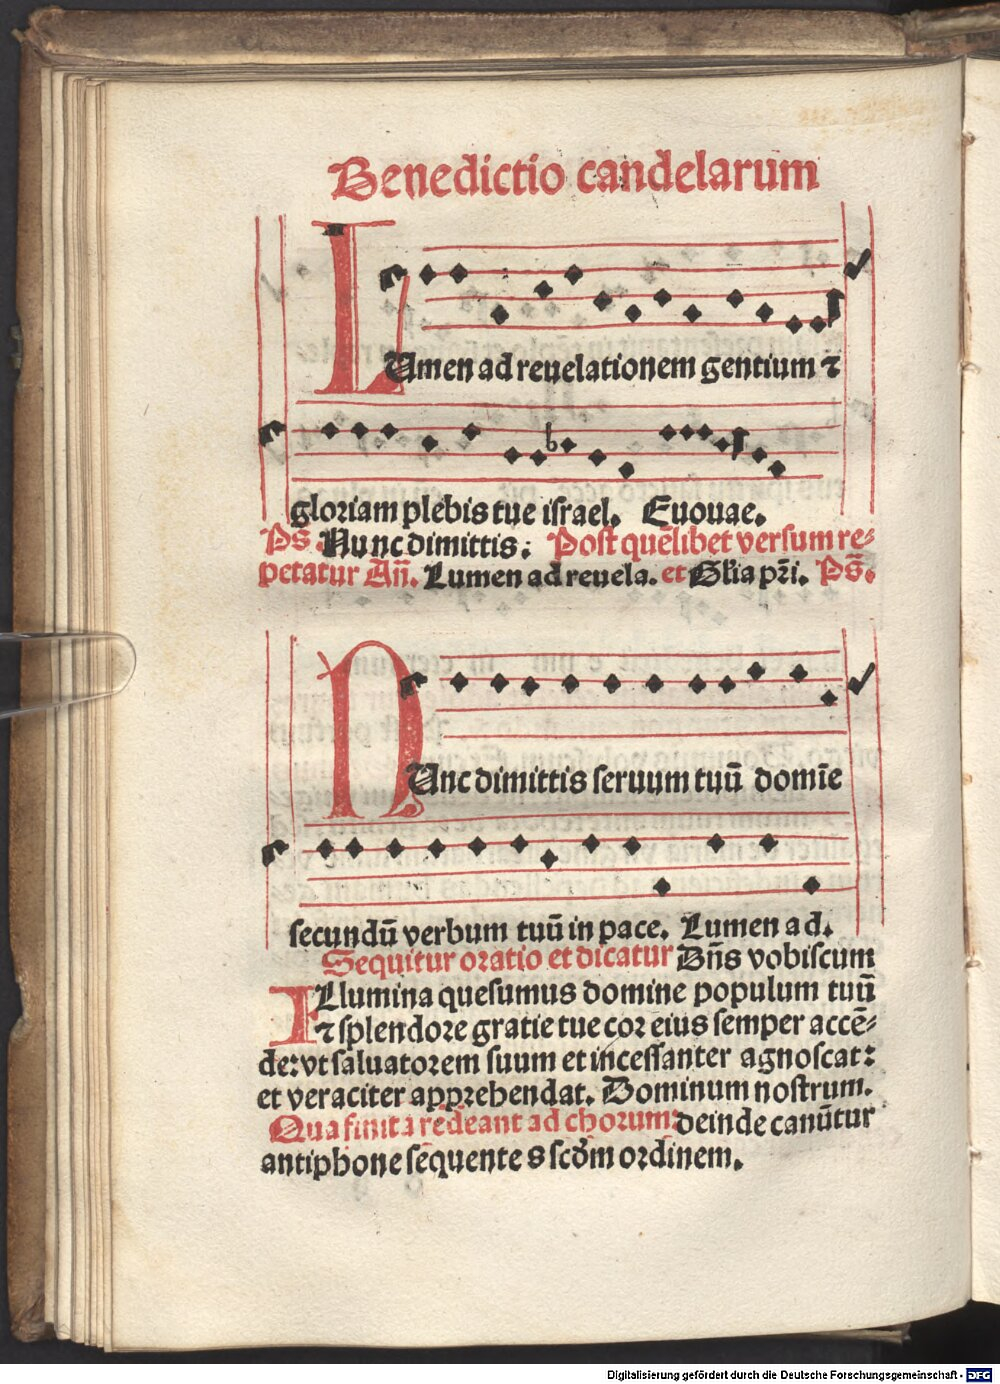 Benedictio candelarum
LUmen ad reuelationem gentium ⁊
gloriam plebis tue israel. Euouae.
Ps. Nunc dimittis: Post quēlibet versum re⸗
petatur Añ. Lumen ad reuela. et Glia pr̄i. Ps̄.
NUnc dimittis seruum tuū domīe
secundū verbum tuū in pace. Lumen ad.
Sequitur oratio et dicatur Dn̄s vobiscum
ILlumina quesumus domine populum tuū
⁊ splendore gratie tue cor eius semper accē⸗
de: vt saluatorem suum et incessanter agnoscat:
et veraciter apprehendat. Dominum nostrum.
Qua finita redeant ad chorum: deinde canūtur
antiphone sequentes scd̄m ordinem.
Digitalisierung gefördert durch die Deutsche Forschungsgemeinschaft - DFG